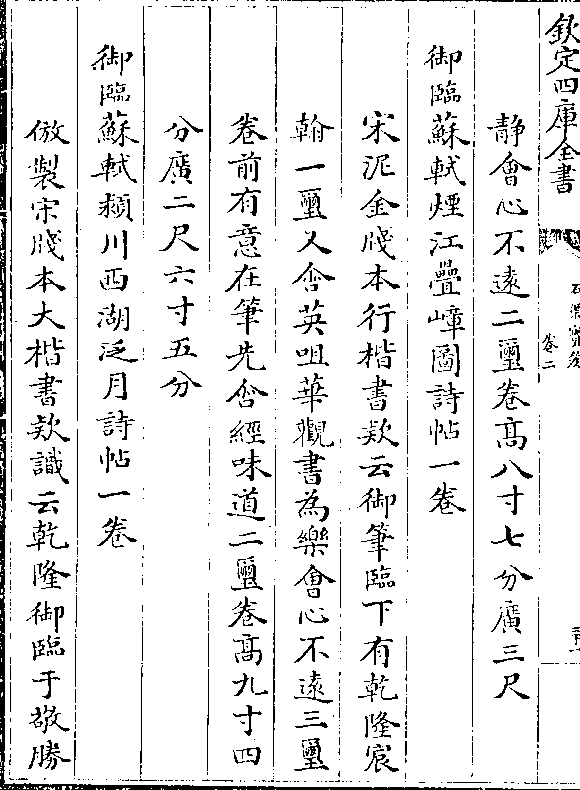 欽定四庫全書
卷二
靜會心不遠二璽卷髙八寸七分廣三尺
御臨蘇軾煙江疊嶂圖詩帖一卷
宋泥金牋本行楷書欵云御筆臨下有乾隆宸
翰一璽又含英咀華觀書為樂會心不遠三璽
卷前有意在筆先含經味道二璽卷髙九寸四
分廣二尺六寸五分
御臨蘇軾潁川西湖泛月詩帖一卷
倣製宋牋本大楷書欵識云乾隆御臨于敬勝